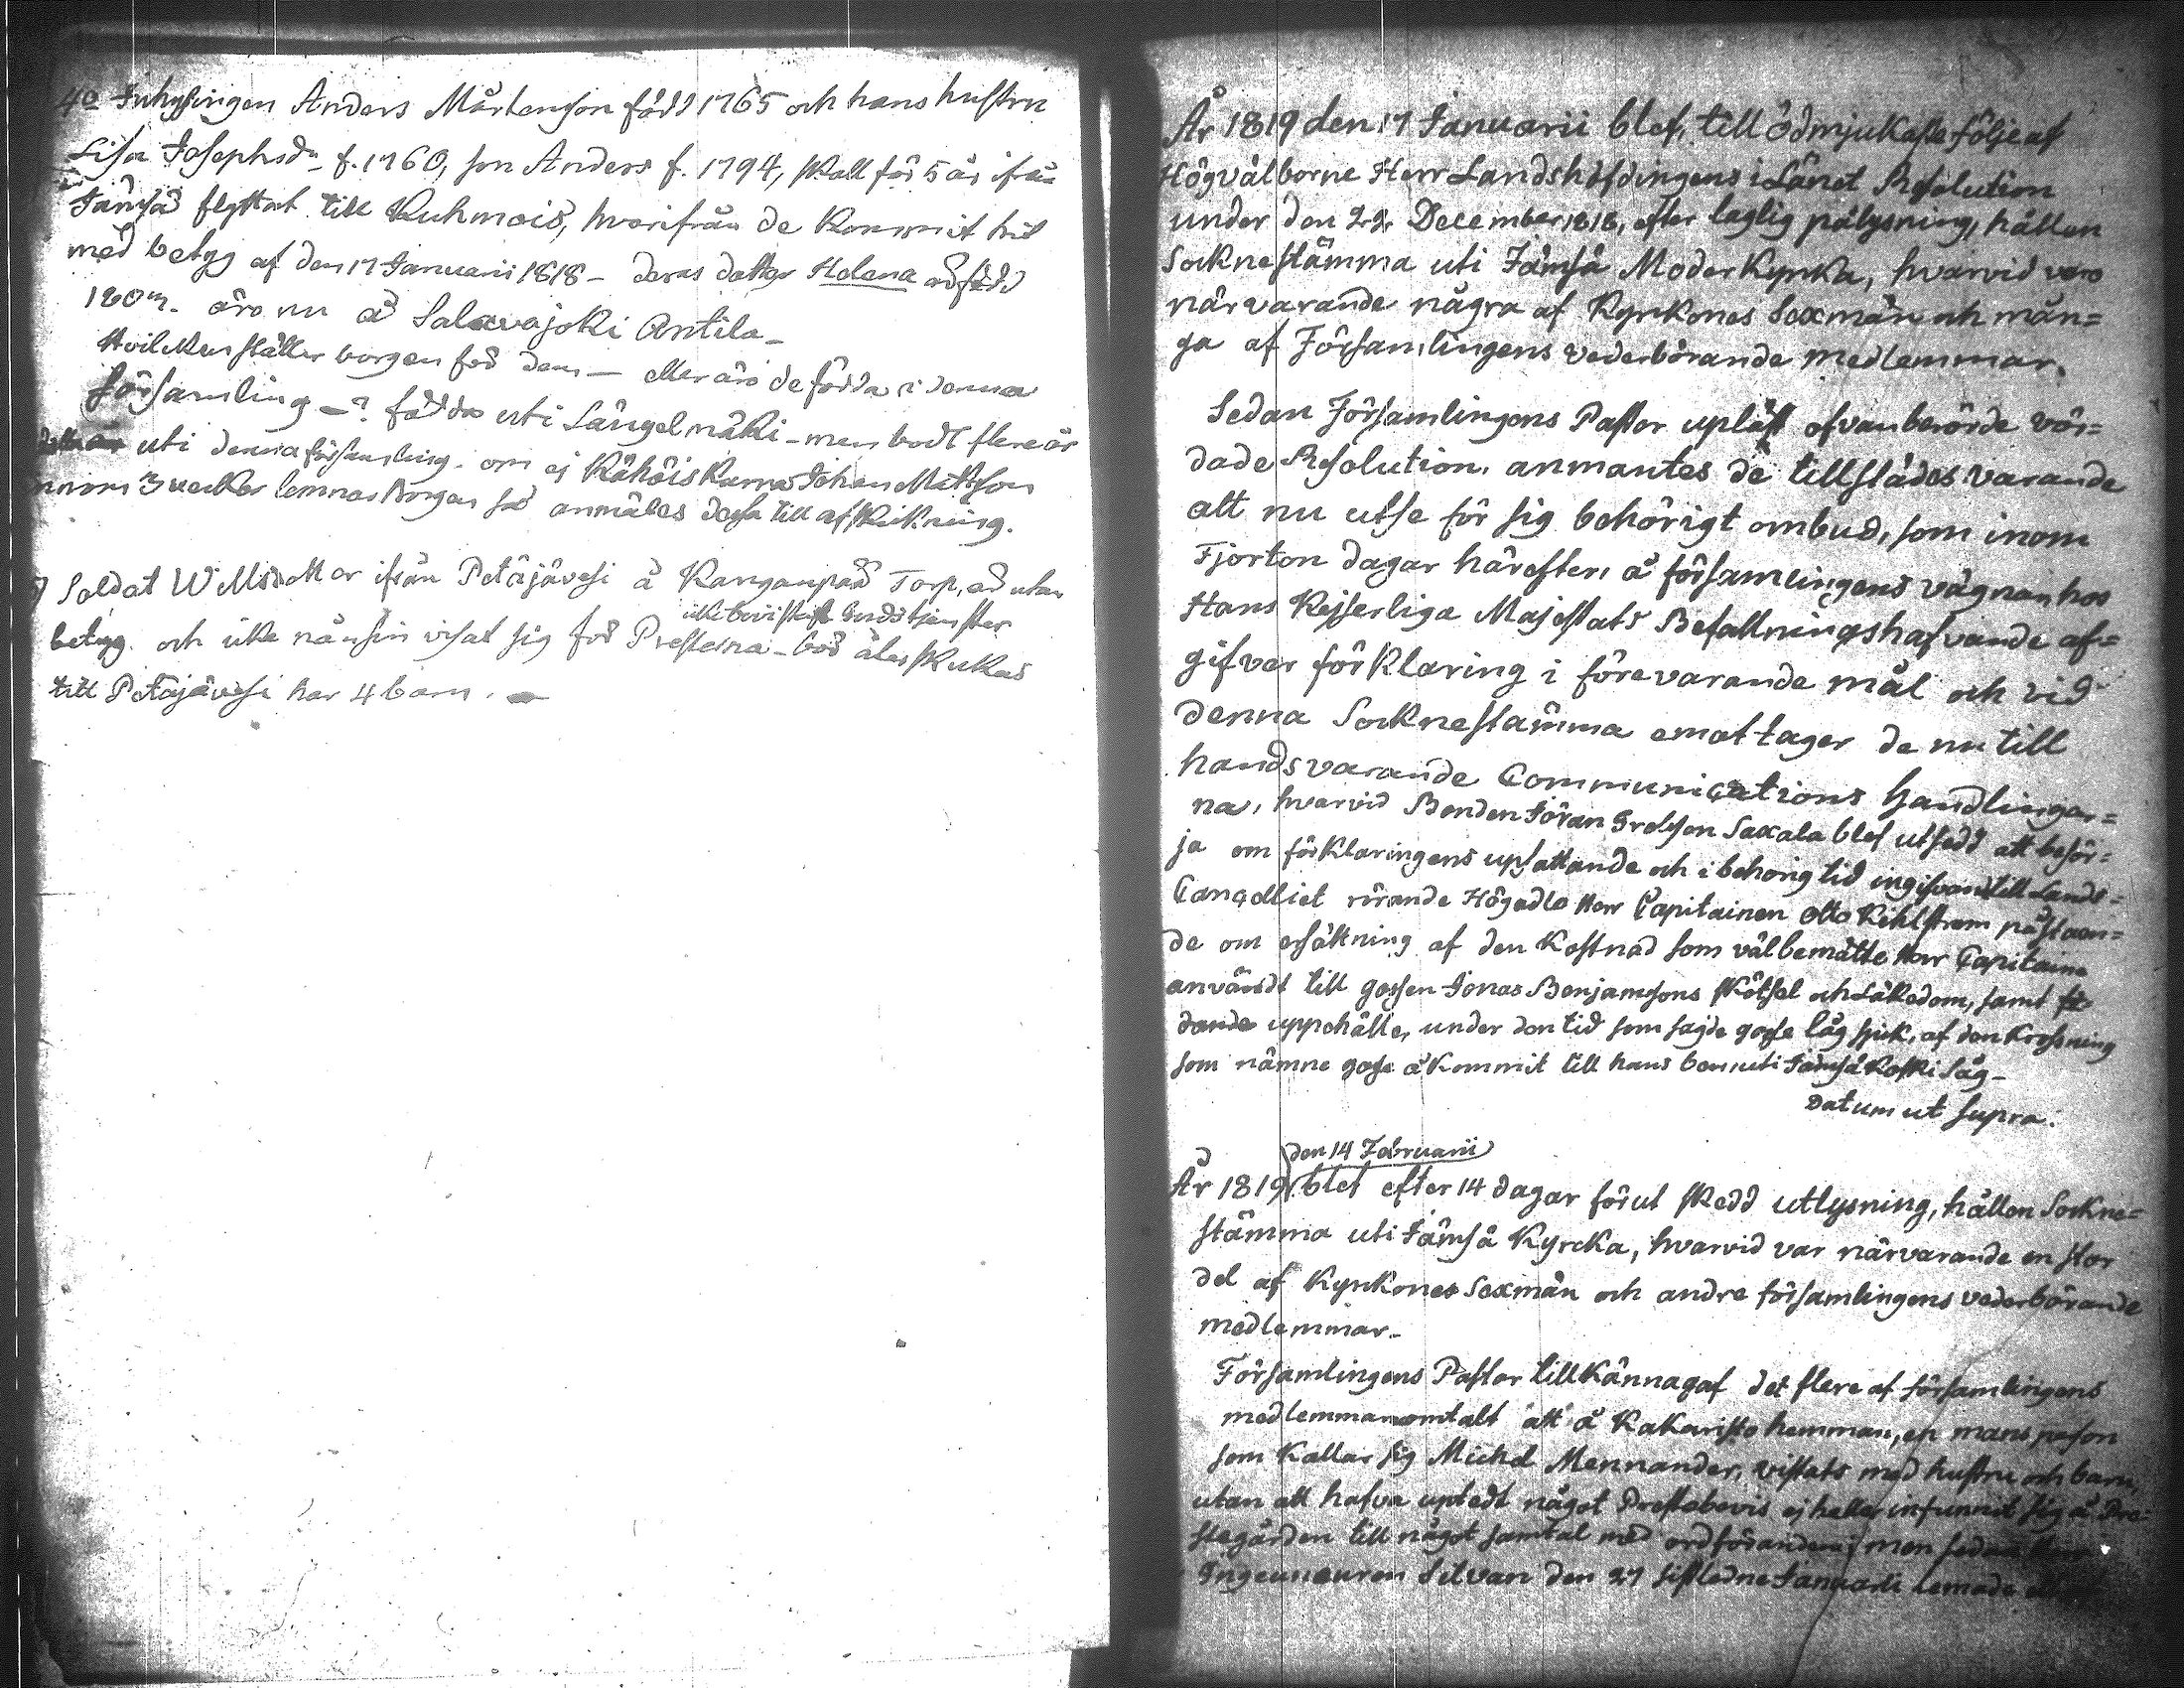 4o Inhysingen Anders Mårtenson född 1765 och hans hustru
Lisa Josephsdr f. 1760, son Anders f. 1794, skall för 5 år ifrån
Jämsä flyttat till Kuhmois, hvarifrån de kommit hit
med betyg af den 17 Januarii 1818 - deras dotter Helena
äro nu å Salavajoki Antila -
Hvilken ställer borgen för dem - eller äro de födda i denna
församling -? födda uti Längelmäki - men bodt flere år
uti denna församling. om ej Kähöis Johan Mattson
innom 3 veckor lemnar borgen så anmäles dessa till afskickning.
Soldat Willsdotter ifrån Petäjävesi å Kangaupää Torp, är utan
icke bevistat Gudstjenster
betyg och icke nånsin visat sig för Presterna - bör skickas
till Petäjävesi har 4 barn.
År 1819 den 17 Januarii blef, till ödmjukaste följe af
Högvälborne Herr Landshöfdingens i Länet Resolution
under den 22. December 1818, efter laglig pålysning, hållen
Socknestämma uti Jämsä Moder Kyrka, hvarvid voro
närvarande några af Kyrkones Sexmän och mån=
ga af Församlingens vederbörande medlemmar.
Sedan Församlingens Pastor upläst ofvanberörde vör=
dade Resolution, anmantes de tillstädes varande
att nu utse för sig behörigt ombud, som inom
Fjorton dagar härefter, å församlingens vägnar hos
Hans Kejserliga Majestäts Befallningshafvande af=
gifver förklaring i förevarande mål och vid
denna Socknestämma emottager de nu till
hands varande Communications handlingar=
na, hvarvid Bonden Jöran Erolsson Saxala blef utsedd att besör=
ja om förklaringens upsattande och i behörig tid ingifvand till Lands=
Cancelliet rörande Högädle Herr Capitainen Otto Kihlstrom påstaen=
de om ersättning af den kostnad som välbemälte Herr Capitaine
användt till gossen Jonas Benjamsons skötsel och Läkedom, samt fö=
dande uppehälle, under den tid som sagde gosse låg sjuk, af den krossning
som nämne gosse åkommit till hans ben uti Jämsä Koski Såg -
Datum ut supra.
den 14 Februarii
År 1819 blef efter 14 dagar förut skedd utlysning, hållen Sockne=
stämma uti Jämsä Kyrcka, hvarvid var närvarande en stor
del af Kyrkones Sexmän och andre församlingens vederbörande
medlemmar -
Församlingens Pastor tillkännagaf det flere af församlingens
medlemmar omtalt att å Kakaristo hemman, en mans person
som kallar sig Michel Mennander, vistats med hustru och barn,
utan att hafva uptedt något Prestabevis ej heller infunnit sig å Pre=
stegården till något samtal med ordföranden; men sedan
Ingeuneuren Silvan den 27 sistledne Januarii lemnade